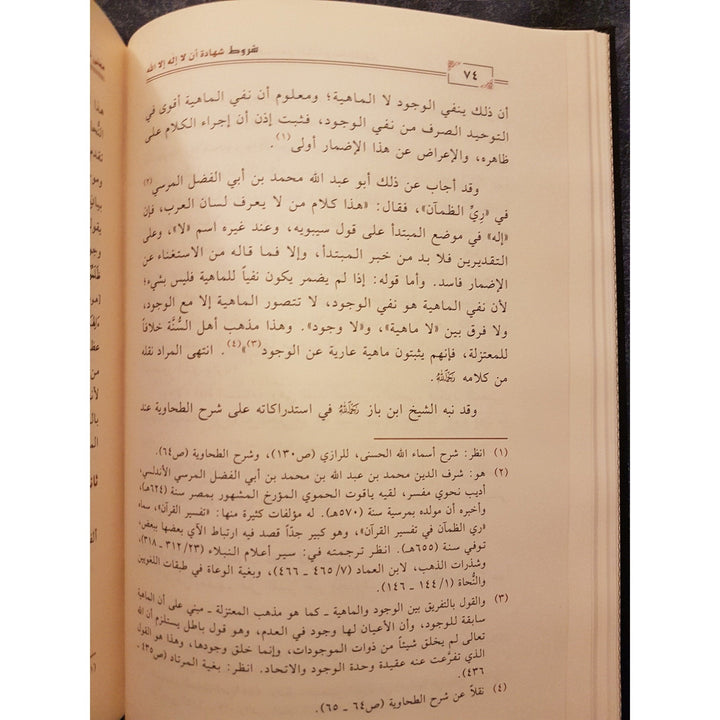 شروط شهادة أن لا إله إلا الله
٧٤
أن ذلك ينفي الوجود لا الماهية؛ ومعلوم أن نفي الماهية أقوى في
التوحيد الصرف من نفي الوجود، فثبت إذن أن إجراء الكلام على
ظاهره، والإعراض عن هذا الإضمار أولى(١).
وقد أجاب عن ذلك أبو عبد الله محمد بن أبي الفضل المرسي(٢)
في «رِيِّ الظمآن»، فقال: «هذا كلام من لا يعرف لسان العرب، فإن
«إله» في موضع المبتدأ على قول سيبويه، وعند غيره اسم «لا»، وعلى
التقديرين فلا بد من خبر المبتدأ، وإلا فما قاله من الاستغناء عن
الإضمار فاسد. وأما قوله: إذا لم يضمر يكون نفياً للماهية فليس بشيء؛
لأن نفي الماهية هو نفي الوجود، لا تتصور الماهية إلا مع الوجود،
ولا فرق بين «لا ماهية»، و«لا وجود». وهذا مذهب أهل السُّنَّة خلافاً
للمعتزلة، فإنهم يثبتون ماهية عارية عن الوجود(٣)»(٤). انتهى المراد نقله
من كلامه رَحِمَهُ اللهُ.
وقد نبه الشيخ ابن باز رَحِمَهُ اللهُ في استدراكاته على شرح الطحاوية عند
(١) انظر: شرح أسماء الله الحسنى، للرازي (ص١٣٠)، وشرح الطحاوية (ص٦٤).
(٢) هو: شرف الدين محمد بن عبد الله بن محمد بن أبي الفضل المرسي الأندلسي،
أديب نحوي مفسر، لقيه ياقوت الحموي المؤرخ المشهور بمصر سنة (٦٢٤هـ)،
وأخبره أن مولده بمرسية سنة (٥٧٠هـ). له مؤلفات كثيرة منها: «تفسير القرآن»، سماه
«ري الظمآن في تفسير القرآن»، وهو كبير جدّاً قصد فيه ارتباط الآي بعضها ببعض،
توفي سنة (٦٥٥هـ). انظر ترجمته في: سير أعلام النبلاء (٢٣/ ٣١٢ ـ ٣١٨)،
وشذرات الذهب، لابن العماد (٧/ ٤٦٥ ـ ٤٦٦)، وبغية الوعاة في طبقات اللغويين
والنُّحاة (١/ ١٤٤ ـ ١٤٦).
(٣) والقول بالتفريق بين الوجود والماهية ـ كما هو مذهب المعتزلة ـ مبني على أن الماهية
سابقة للوجود، وأن الأعيان لها وجود في العدم، وهو قول باطل يستلزم أن الله
تعالى لم يخلق شيئاً من ذوات الموجودات، وإنما خلق وجودها، وهذا هو القول
الذي تفرَّعت عنه عقيدة وحدة الوجود والاتحاد. انظر: بغية المرتاد (ص٤٣٥ ـ
٤٣٦).
(٤) نقلاً عن شرح الطحاوية (ص٦٤ ـ ٦٥).